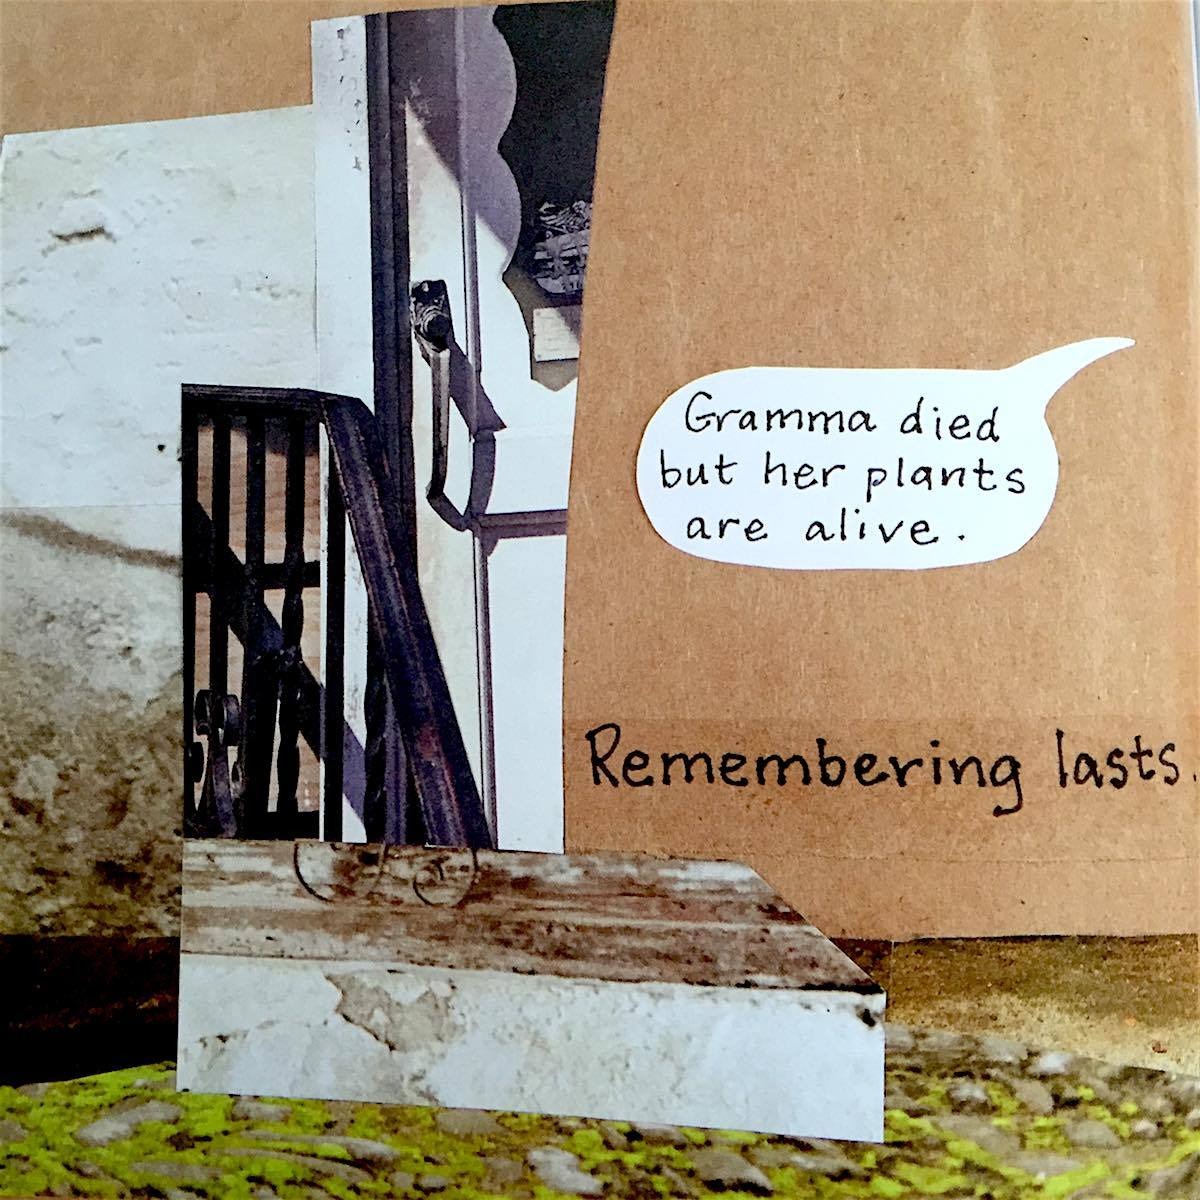 Gramma died
but her plants
are alive.
Remembering lasts.